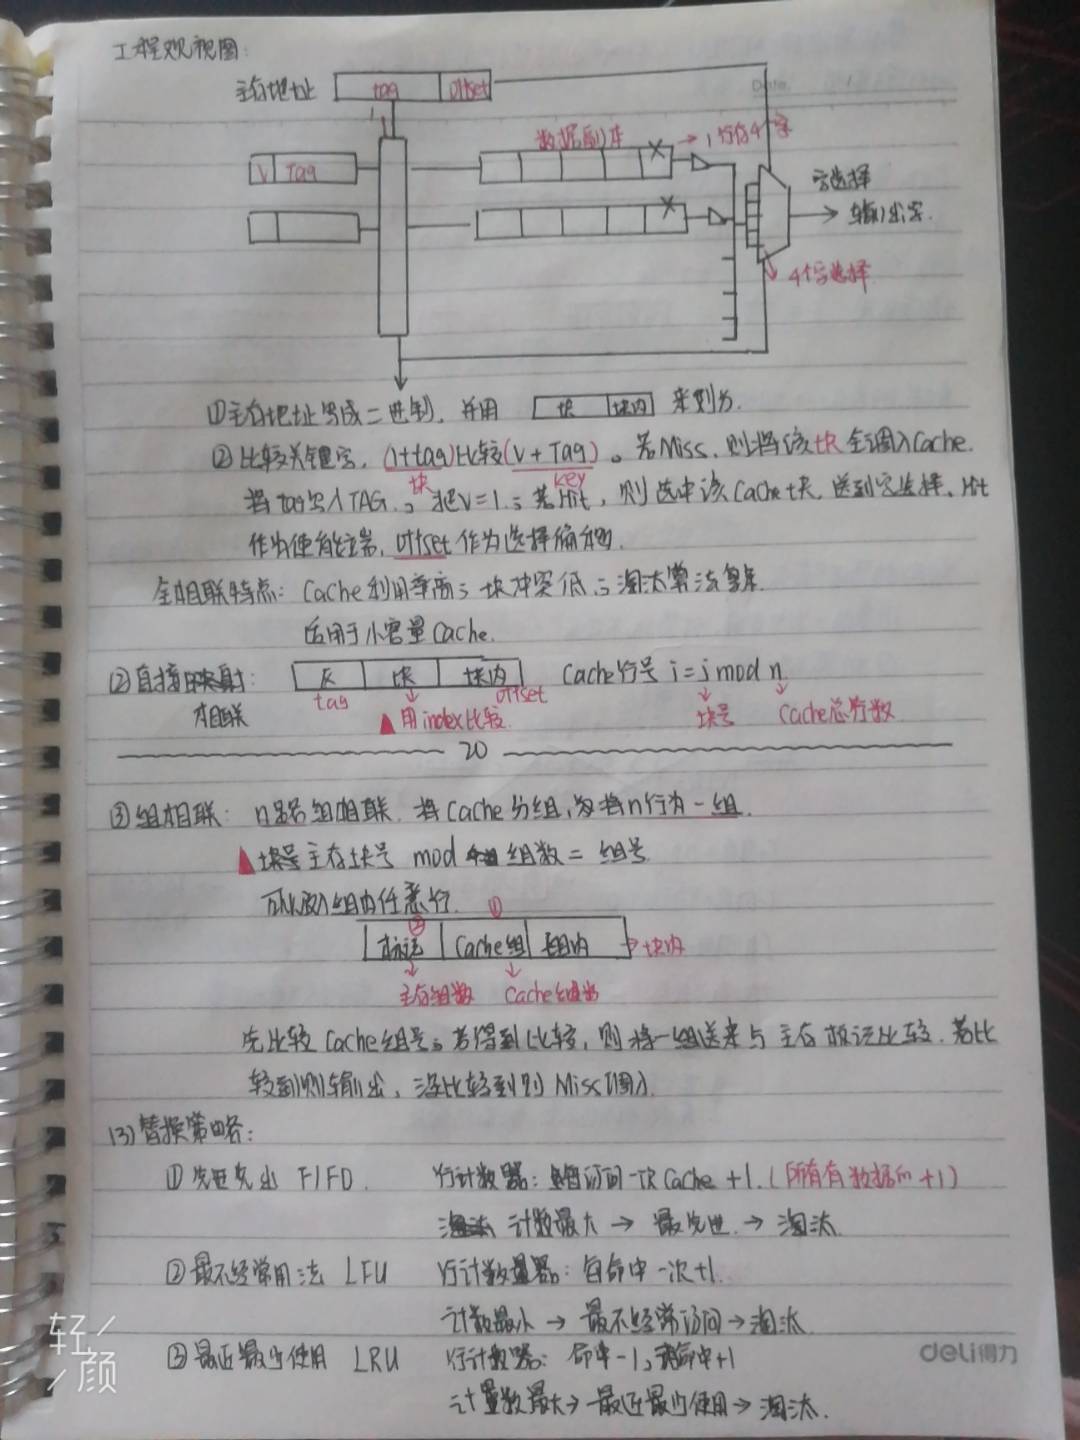 工程观视图:
主存地址 tag offset
Date.
1
数据副本 → 1行存4字
V Tag
字选择
输出字.
4个字选择
①主存地址写成二进制, 并用 块 块内 来划分.
②比较关键字, (1+tag)比较(V + Tag)。若Miss, 则将该块全调入Cache.
块 key
将tag写入TAG.。把V=1.。若Hit, 则选中该Cache块, 送到字选择、Hit
作为使能控端, offset作为选择
全相联特点: Cache利用率高; 块冲突低.; 淘汰算法复杂.
适用于小容量Cache.
②直接映射: 区 块 块内 Cache行号 i=j mod n
相联 tag offset
▲用index比较 块号 Cache总行数
20
③组相联: n路组相联. 将Cache分组, 每将n行为一组.
▲ 主存块号 mod 组数 = 组号
可以放入组内任意行. ①
②
标记 Cache组 组内 → 块内
主存组数 Cache组数
先比较Cache组号。若得到比较, 则将一组送来与主存标记比较. 若比
较到则输出, 没比较到则Miss(调).
(3)替换策略:
①先进先出 FIFO. 行计数器: 每访问一次Cache +1. (所有有数据的+1)
计数最大 → 最先进. → 淘汰
②最不经常用法 LFU 行计数器: 每命中一次+1.
计数最小 → 最不经常访问 → 淘汰.
③最近最少使用 LRU 行计数器: 命中-1, 命中+1
计量数最大→最近最少使用→淘汰.
轻颜
deli得力